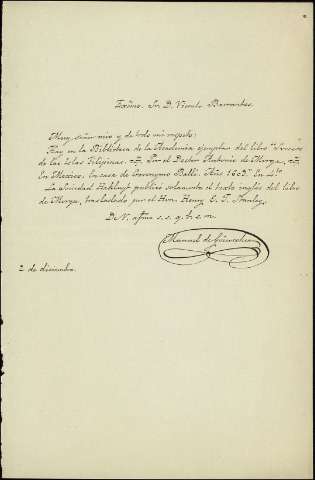 Excmo. Sr. D. Vicente Barrantes.
Muy señor mio y de todo mi respeto:
Hay en la Biblioteca de la Academia ejemplar del libro "Sucesos
de las Islas Filipinas. Por el Doctor Antonio de Morga,
En Mexico. En casa de Geronymo Balli. Año 1609." En 4.º
La Sociedad Hakluyt publicó solamente el texto inglés del libro
de Morga, trasladado por el Hon. Henry E. J. Stanley.
D. V. afmo s. s. q. b. s. m.
Manuel de Goicoechea
2 de diciembre.